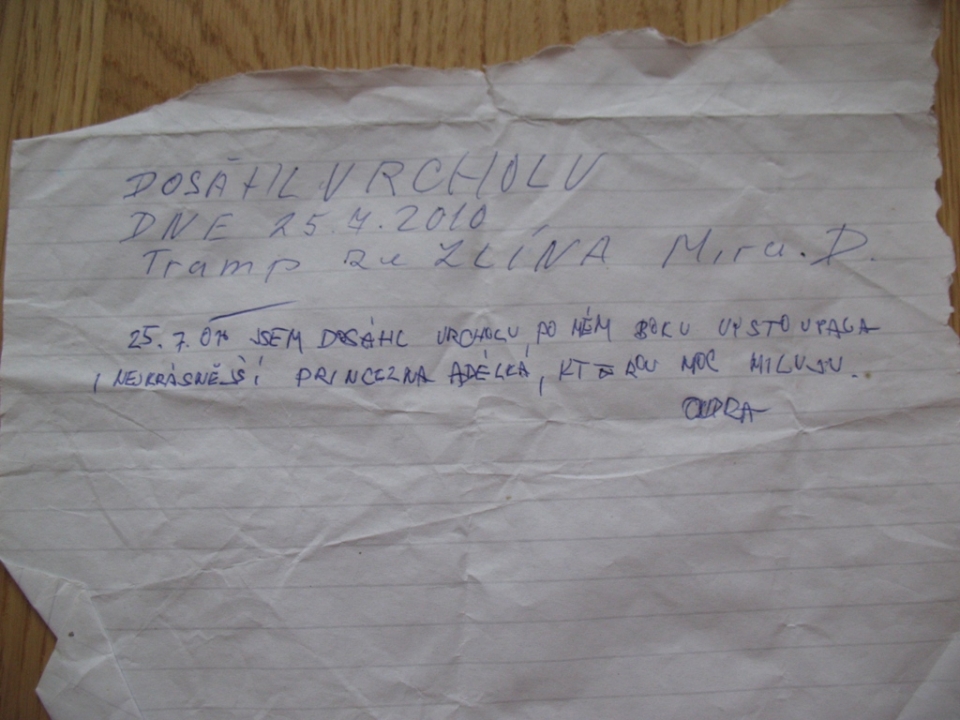 DOSÁHL VRCHOLU
DNE 25.7.2010
Tramp ze ZLÍNA Mira. D.
25.7. JSEM DOSÁHL VRCHOLU, PO MÉM BOKU VYSTOUPALA
I NEJKRÁSNĚJŠÍ PRINCEZNA ADÉLKA, KTEROU MOC MILUJU.